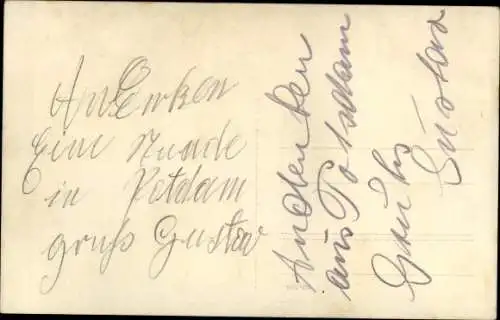 Andenken
Eine Runde
in Potdam
gruß Gustav
Andenken
aus Potsdam
Gruß
Gustav